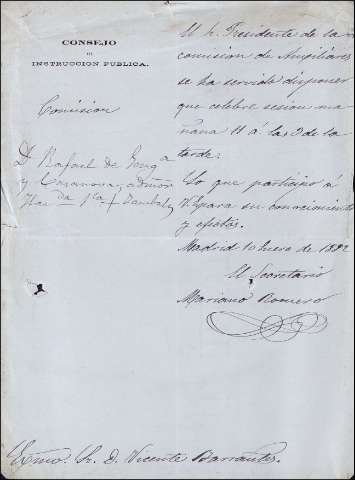 CONSEJO
DE
INSTRUCCION PUBLICA.
Comision
D. Rafael de
y Casanova, admor
El Sr. Presidente de la
comision de Auxiliares
se ha servido disponer
que celebre sesion ma
ñana 11 á las 2 de la
tarde.
Lo que participo á
V.E. para su conocimiento
y efectos.
Madrid 10 Enero de 1882
El Secretario
Mariano Romero
Exmo. Sr. D. Vicente Barrantes.